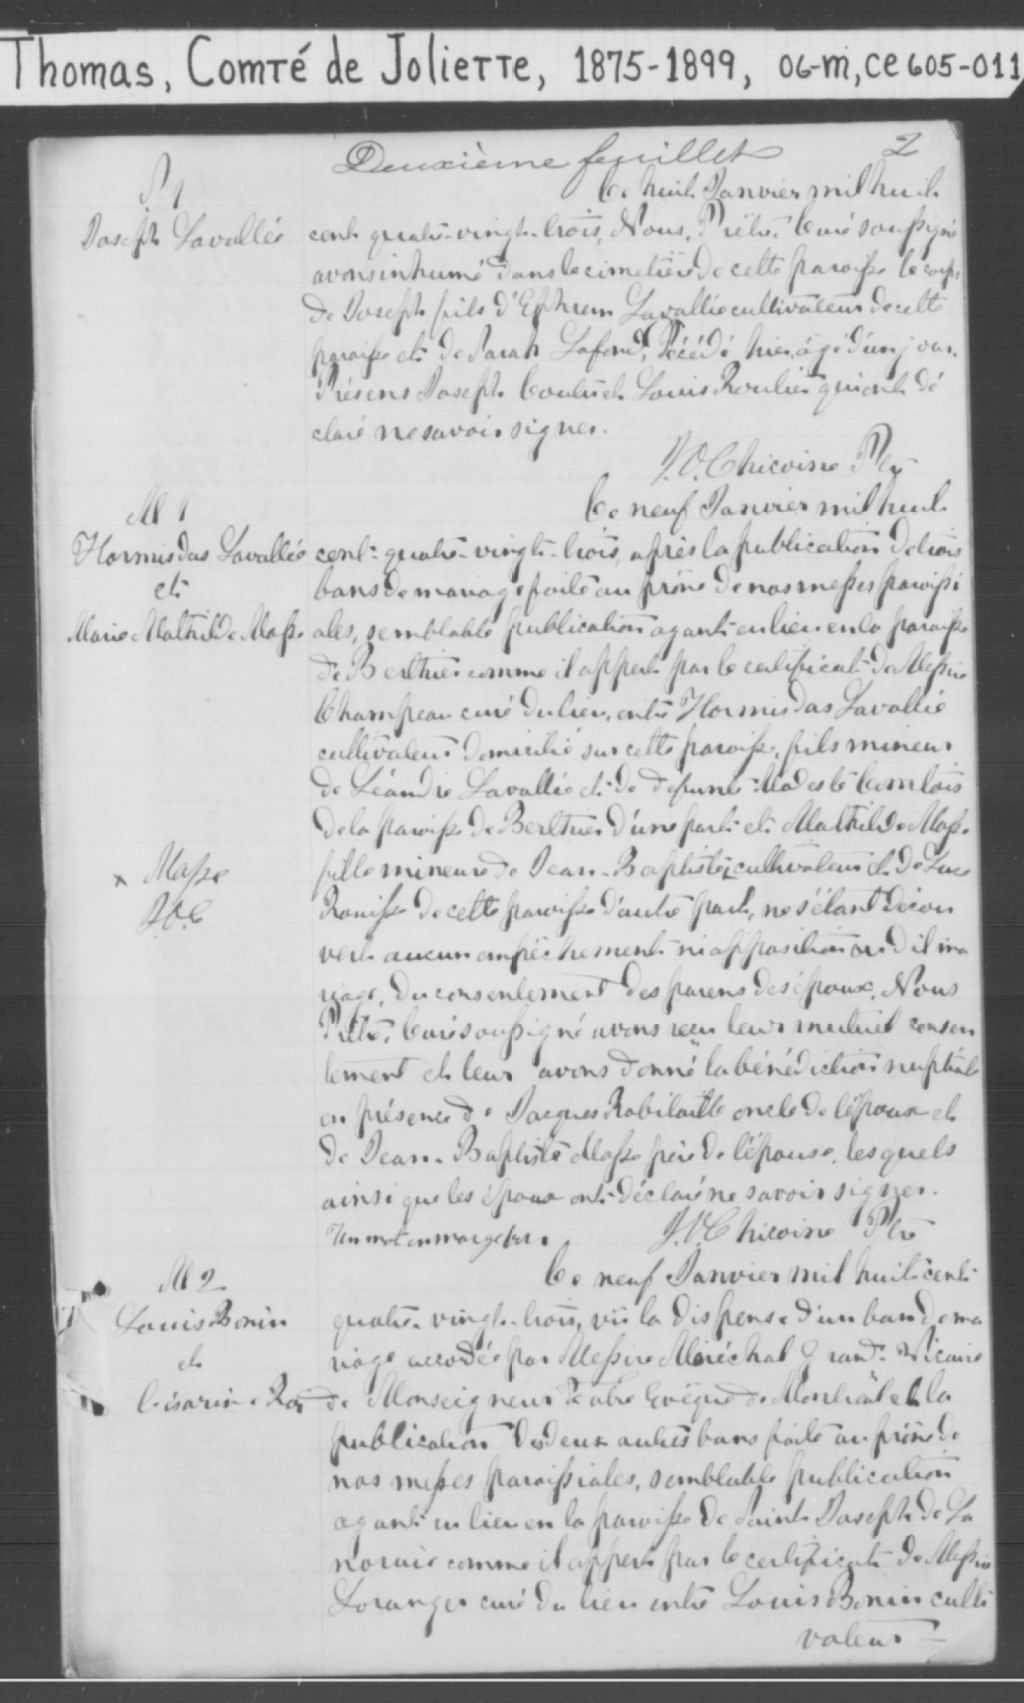 Thomas, Comté de Joliette, 1875-1899, 06-M, CE605-011
Deuxième feuillet 2
S. 1
Joseph Lavallée
Ce huit Janvier mil huit
cent quatre-vingt-trois, Nous, Prêtre, Curé soussigné
avons inhumé dans le cimetière de cette paroisse le corps
de Joseph fils d'Ephrem Lavallée cultivateur de cette
paroisse et de Sarah Lafond, décédé hier, âgé d'un jour.
Présens Joseph Coutu et Louis Roulier qui ont dé
claré ne savoir signer.
J.O. Chicoine Ptre
M 1
Hormisdas Lavallée
et
Marie Mathilde Masse
Ce neuf Janvier mil huit
cent quatre-vingt-trois, après la publication de trois
bans de mariage faite au prône de nos messes paroissi
ales, semblable publication ayant eu lieu en la paroisse
de Berthier comme il appert par le certificat de Messire
Champeau curé du lieu, entre Hormisdas Lavallée
cultivateur domicilié sur cette paroisse, fils mineur
de Léandre Lavallée et de défunte Modeste Comtois
de la paroisse de Berthier d'une part et Mathilde Masse
x Masse
J.O.C
fille mineure de Jean-Baptiste x cultivateur et de Luce
de cette paroisse d'autre part, ne s'étant décou
vert aucun empêchement ni opposition au dit ma
riage, du consentement des parens des époux, Nous
Prêtre, Curé soussigné avons reçu leur mutuel consen
tement et leur avons donné la bénédiction nuptiale
en présence de Jacques Robitaille oncle de l'époux et
de Jean-Baptiste Masse père de l'épouse, lesquels
ainsi que les époux ont déclaré ne savoir signer.
Un mot en marge bon.
J.O. Chicoine Ptre
M 2
Louis Bonin
et
Césarine Roy
Ce neuf Janvier mil huit cent
quatre-vingt-trois, vû la dispense d'un ban de ma
riage accordée par Messire Maréchal Grand-Vicaire
de Monseigneur Fabre Evêque de Montréal et la
publication des deux autres bans faite au prône de
nos messes paroissiales, semblable publication
ayant eu lieu en la paroisse de Saint Joseph de La
noraie comme il appert par le certificat de Messire
Loranger curé du lieu entre Louis Bonin culti
vateur